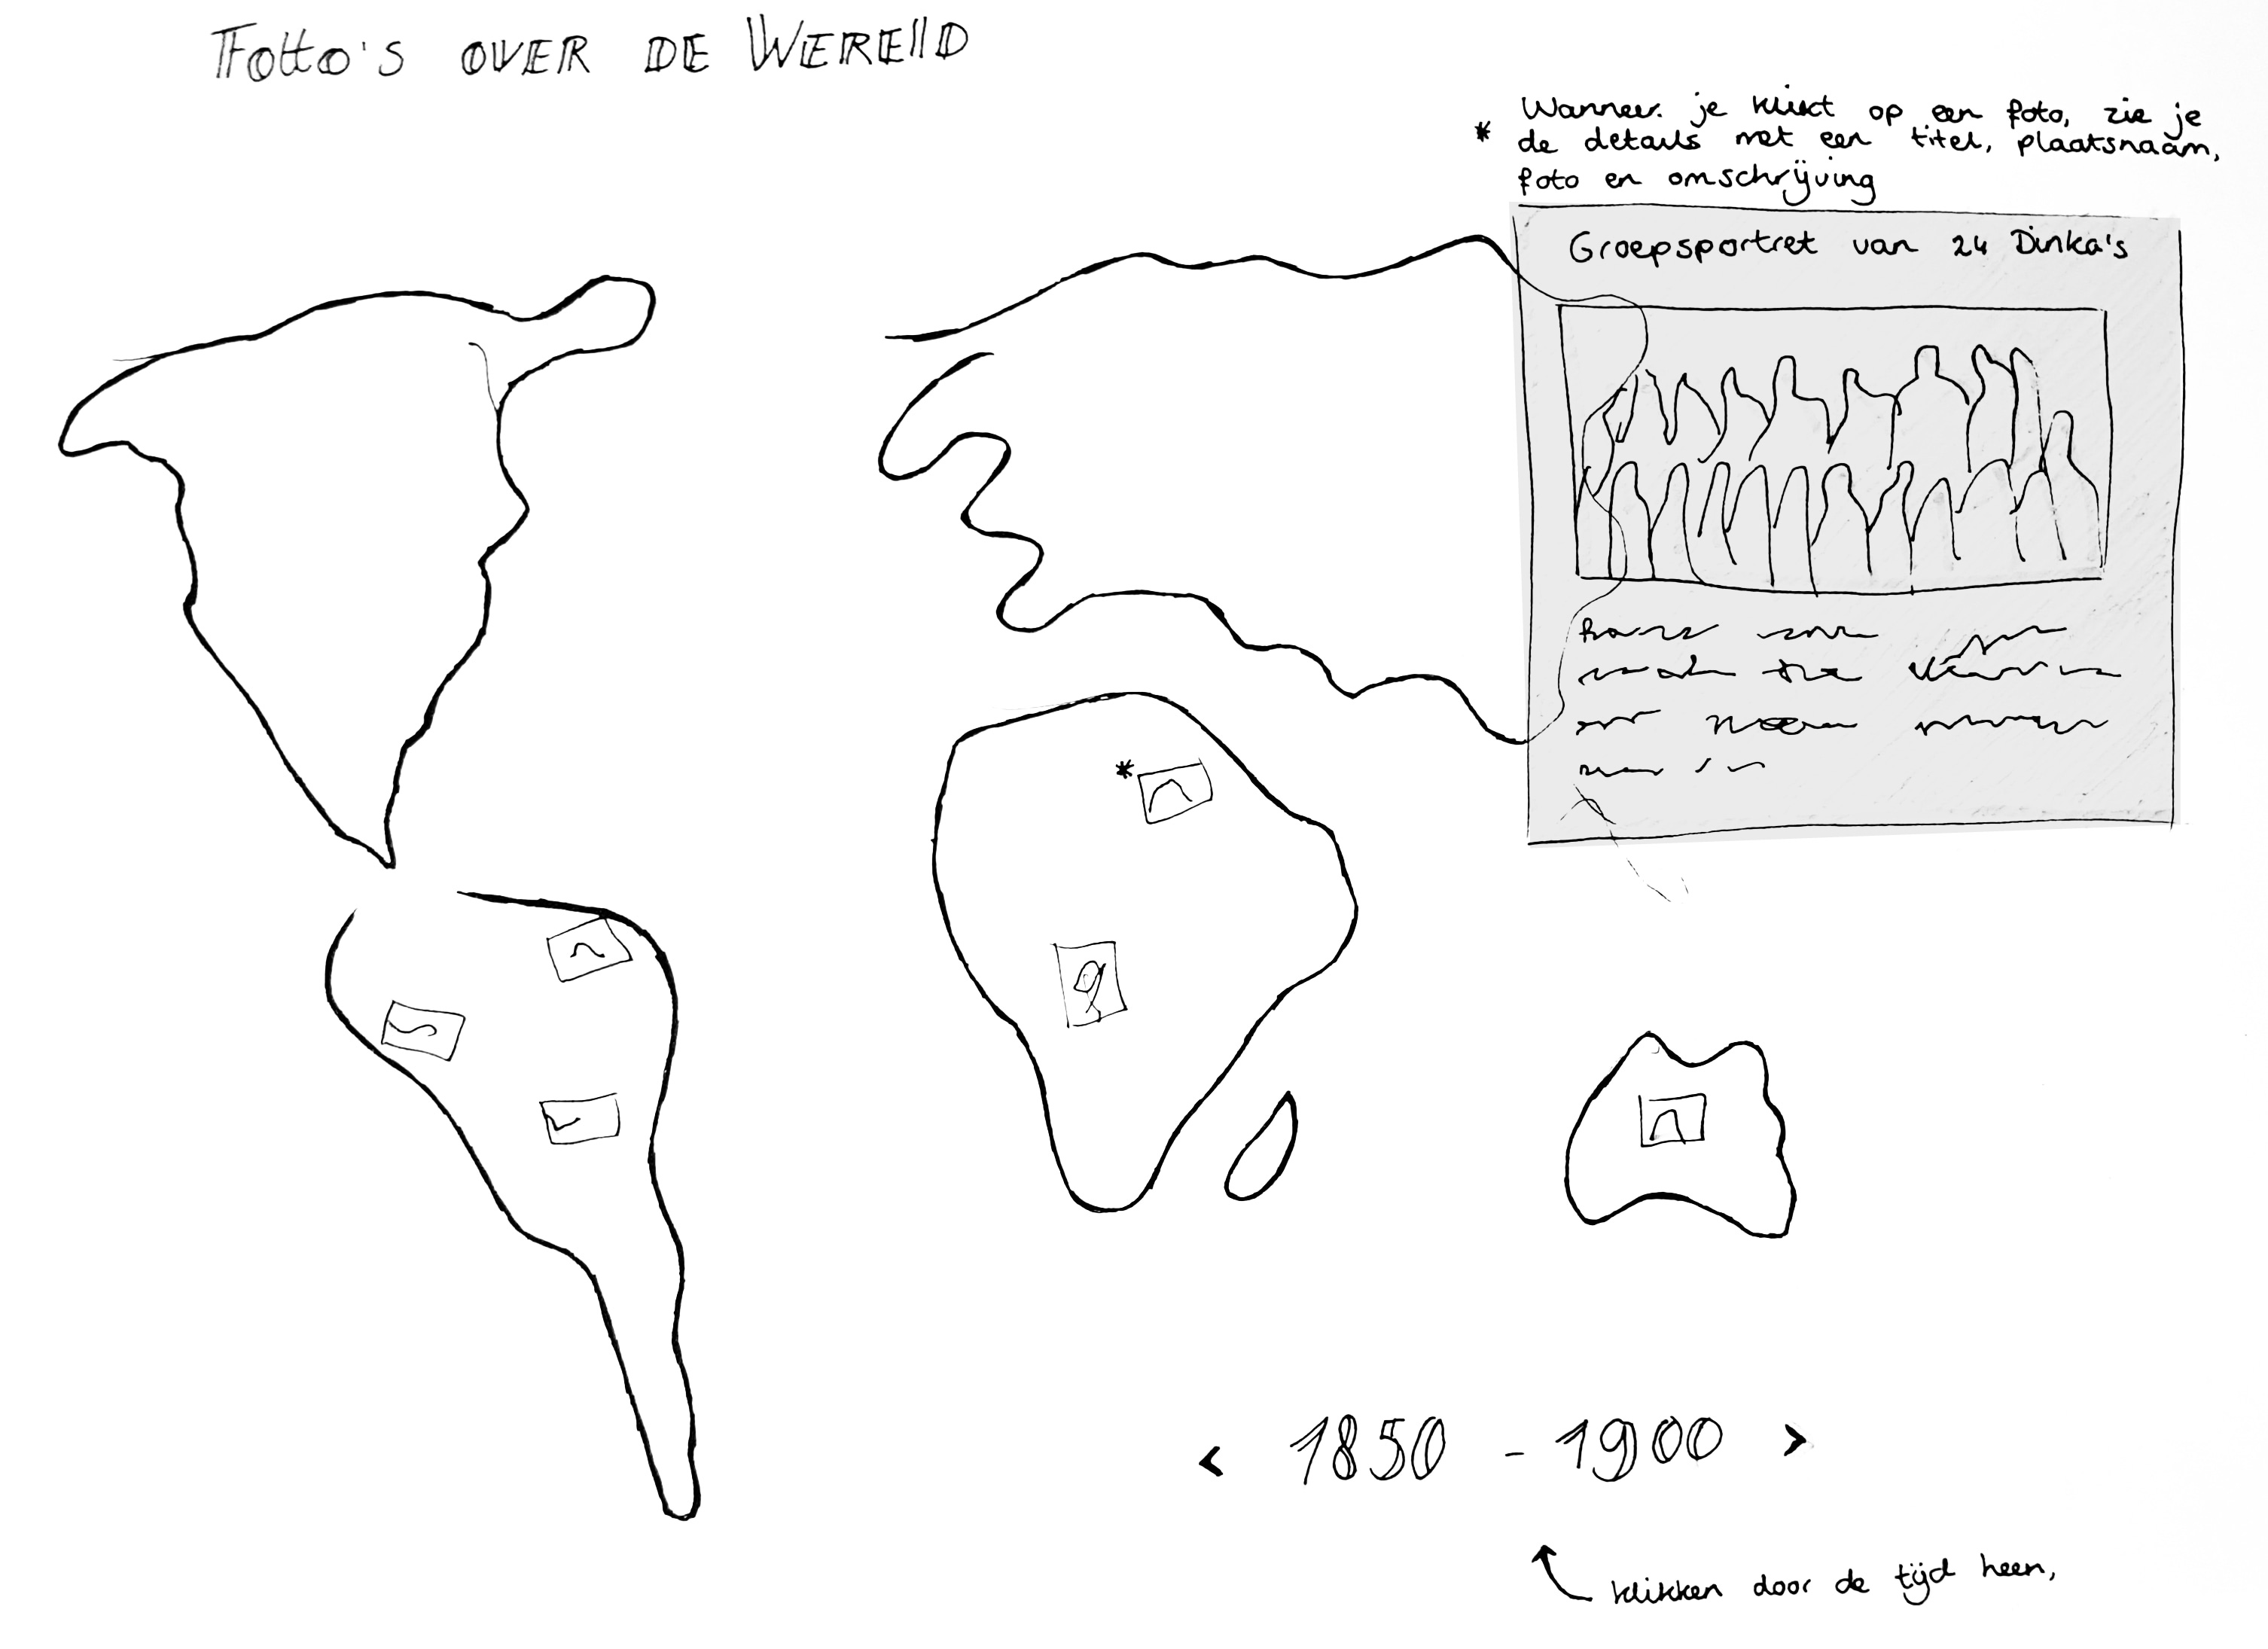 Foto's over de Wereld
* Wanneer je klikt op een foto, zie je
de details met een titel, plaatsnaam,
foto en omschrijving
Groepsportret van 24 Dinka's
*
< 1850 - 1900 >
klikken door de tijd heen,